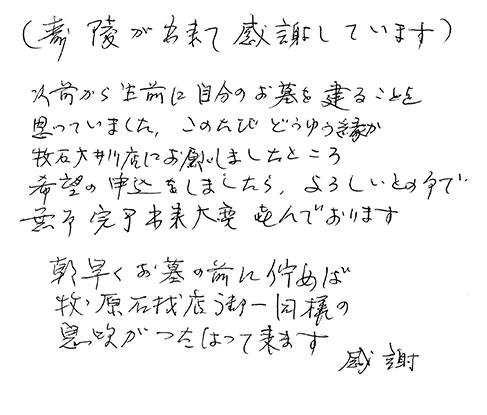 (寿陵が出来て感謝しています)
以前から生前に自分のお墓を建ることを
思っていました。このたびどうゆう縁か
牧石大井川店にお願いしましたところ
希望の申込をしましたら、よろしいとの事で
無事完了出来大変喜んでおります
朝早くお墓の前に佇めば
牧ノ原石材店御一同様の
息吹がつたはって来ます
感謝